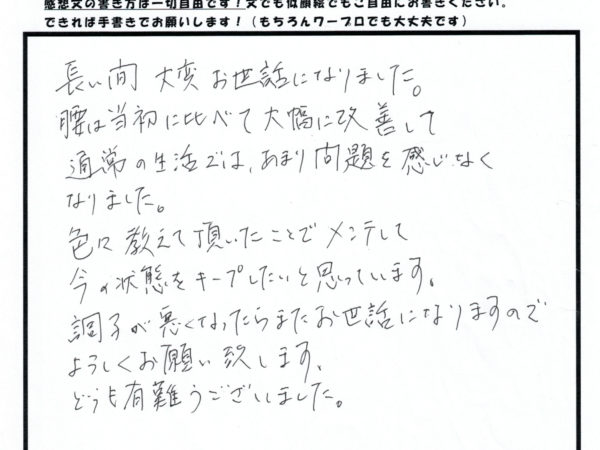 感想文の書き方は一切自由です！文でも似顔絵でもご自由にお書きください。
できれば手書きでお願いします！（もちろんワープロでも大丈夫です）
長い間 大変お世話になりました。
腰は当初に比べて大幅に改善して
通常の生活では、あまり問題を感じなく
なりました。
色々教えて頂いたことでメンテして
今の状態をキープしたいと思っています。
調子が悪くなったらまたお世話になりますので
よろしくお願い致します、
どうも有難うございました。